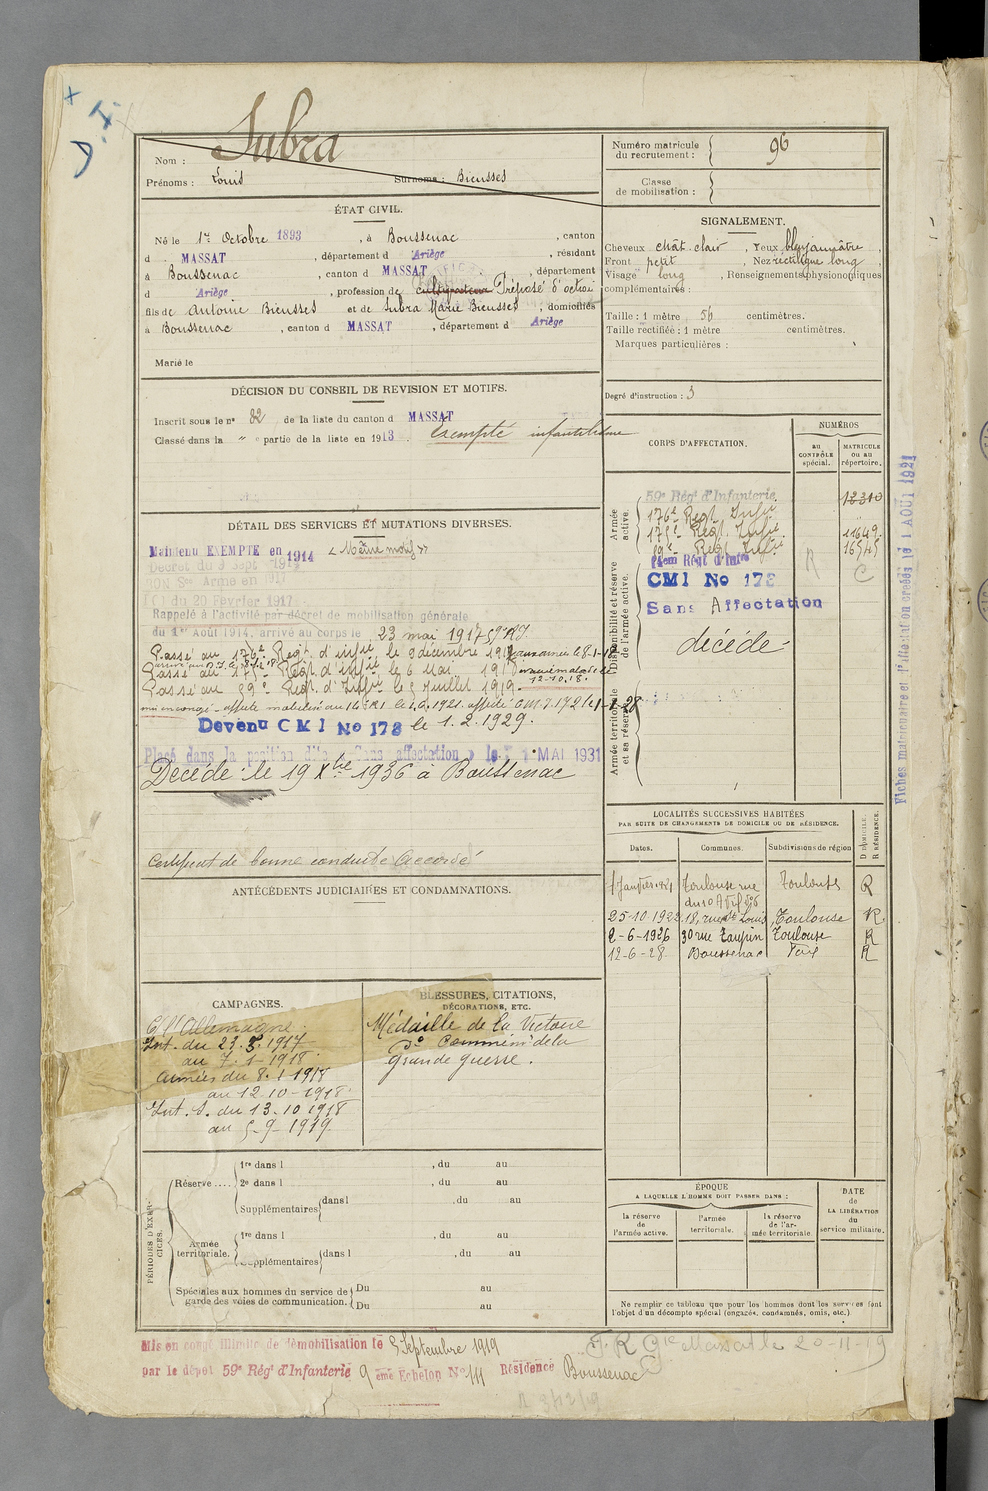 Nom : Subra
Prénoms : Louis Surnoms : Bieusses
Numéro matricule du recrutement : 96
Classe de mobilisation :
ÉTAT CIVIL.
Né le 1er Octobre 1893, à Boussenac, canton
d MASSAT, département d Ariège, résidant
à Boussenac, canton d MASSAT, département
d Ariège, profession de cultivateur Préposé d'octroi
fils de Antoine Bieusses et de Subra Marie Bieusses, domiciliés
à Boussenac, canton d MASSAT, département d Ariège
Marié le
SIGNALEMENT.
Cheveux chât. clair, Yeux bleu jaunâtre,
Front petit, Nez rectiligne long,
Visage long, Renseignements physionomiques
complémentaires :
Taille : 1 mètre 56 centimètres.
Taille rectifiée : 1 mètre centimètres.
Marques particulières :
Degré d'instruction : 3
DÉCISION DU CONSEIL DE REVISION ET MOTIFS.
Inscrit sous le n° 82 de la liste du canton d MASSAT
Classé dans la " e partie de la liste en 1913. Exempté infantilisme
DÉTAIL DES SERVICES ET MUTATIONS DIVERSES.
Maintenu EXEMPTÉ en 1914 « Même motif »
Décret du 9 Sept 1914
BON Sce Armé en 1917
Loi du 20 Février 1917
Rappelé à l'activité par décret de mobilisation générale
du 1er Août 1914, arrivé au corps le 23 mai 1917 59e RI.
Passé au 176e Regt. d'infie le 9 décembre 1917 aux armées le 8-1-18
Passé au 175e Regt. d'infie le 6 Mai 1918
12-10-18.
Passé au 59e Regt. d'Infie le 5 Juillet 1919.
Devenu CMI No 178 le 1.2.1929.
Placé dans la position dite « Sans affectation » le 1 MAI 1931
Décédé le 19 Xbre 1936 à Boussenac
Certificat de bonne conduite Accordé
CORPS D'AFFECTATION.
NUMÉROS
au CONTRÔLE spécial.
MATRICULE ou au répertoire.
Armée active.
59e Régt d'Infanterie. 12310
176e Regt Infie
175e Regt Infie 11649
59e Regt Infie 16545
Disponibilité et réserve de l'armée active.
14em Régt d'Infie
CMI No 178
Sans Affectation
décédé
Armée territoriale et sa réserve.
Fiches matriculaire et d'affectation créées le 1 AOUT 1921
ANTÉCÉDENTS JUDICIAIRES ET CONDAMNATIONS.
LOCALITÉS SUCCESSIVES HABITÉES
PAR SUITE DE CHANGEMENTS DE DOMICILE OU DE RÉSIDENCE.
Dates. Communes. Subdivisions de région D DOMICILE. R RÉSIDENCE.
1 Janvier 1921 Toulouse rue du 10 Avril Toulouse R
25-10-1922 18, rue St Louis Toulouse R
2-6-1926 30 rue Taupin Toulouse R
12-6-28 Boussenac Foix R
CAMPAGNES.
C/ l'Allemagne.
Int. du 23.5.1917
au 7-1-1918
Armées du 8-1-1918
au 12-10-1918
Int. S. du 13.10 1918
au 5-9-1919
BLESSURES, CITATIONS,
DÉCORATIONS, ETC.
Médaille de la Victoire
do Commémve de la
Grande guerre.
PÉRIODES D'EXERCICES.
Réserve .... 1re dans l , du au
2e dans l , du au
Supplémentaires dans l , du au
Armée territoriale. 1re dans l , du au
Supplémentaires dans l , du au
Spéciales aux hommes du service de garde des voies de communication. Du au
Du au
ÉPOQUE
A LAQUELLE L'HOMME DOIT PASSER DANS :
la réserve de l'armée active.
l'armée territoriale.
la réserve de l'armée territoriale.
DATE de LA LIBÉRATION du service militaire.
Ne remplir ce tableau que pour les hommes dont les services font
l'objet d'un décompte spécial (engagés, condamnés, omis, etc.).
Mis en congé illimité de démobilisation le 5 Septembre 1919
par le dépôt 59e Régt d'Infanterie 9 ème Echelon No 111 Résidence Boussenac
F R Gie Massat le 20-11-19